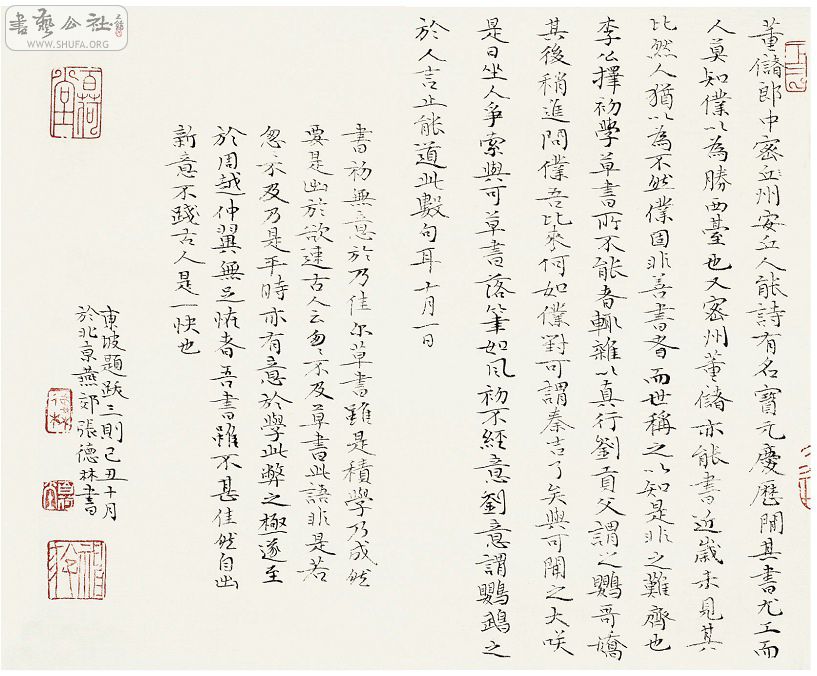 書藝公社
WWW.SHUFA.ORG
董儲郎中密丘州安丘人能詩有名寶元慶歷間其書尤工而
人莫知僕以為勝西臺也又密州董儲亦能書近歲未見其
比然人猶以為不然僕固非善書者而世稱之以知是非之難齊也
李公擇初學草書所不能者輒雜以真行劉貢父謂之鸚哥嬌
其後稍進問僕吾比來何如僕對可謂秦吉了矣與可聞之大咲
是日坐人爭索與可草書落筆如風初不經意劉意謂鸚鵡之
於人言止能道此數句耳十月一日
書初無意於乃佳尔草書雖是積學乃成然
要是出於欲速古人云匆匆不及草書此語非是若
忽不及乃是平時亦有意於學此弊之極遂至
於周越仲翼無足怪者吾書雖不甚佳然自出
新意不踐古人是一快也
東坡題跋三則己丑十月
於北京燕郊張德林書
百荷堂
德林